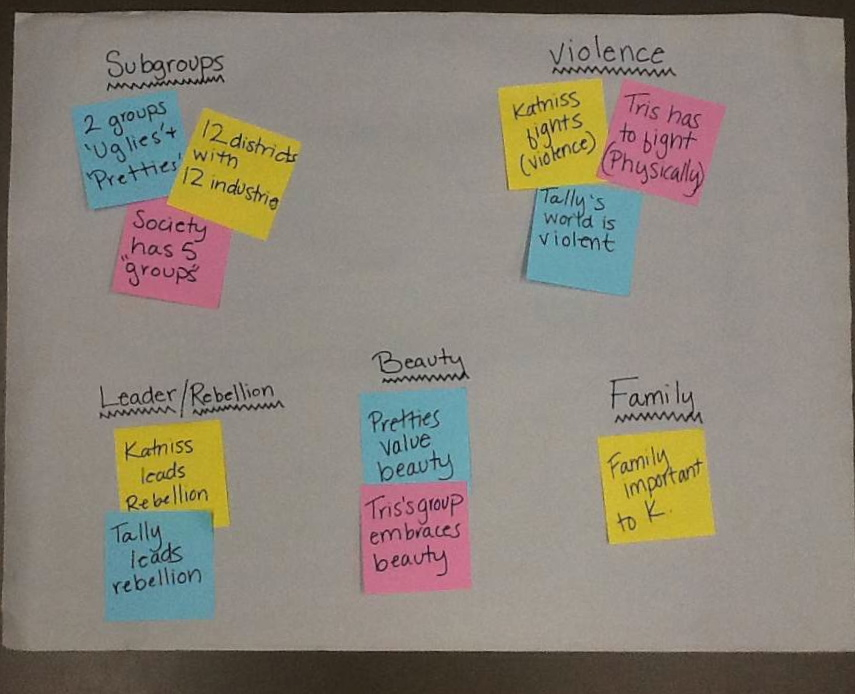 Subgroups
2 groups
'Uglies' +
'Pretties'
12 districts
with
12 industrie
Society
has 5
"groups"
Violence
Katniss
fights
(violence)
Tris has
to fight
(Physically)
Tally's
world is
violent
Leader/Rebellion
Katniss
leads
Rebellion
Tally
leads
rebellion
Beauty
Pretties
value
beauty
Tris's group
embraces
beauty
Family
Family
important
to K.